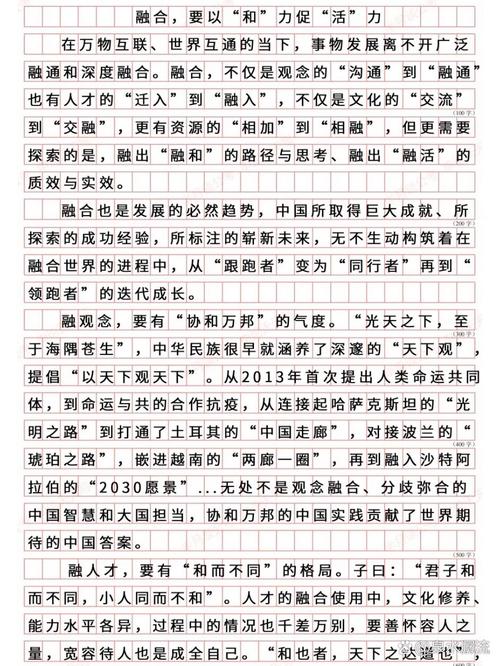 融合,要以“和”力促“活”力
在万物互联、世界互通的当下,事物发展离不开广泛
融通和深度融合。融合,不仅是观念的“沟通”到“融通”
也有人才的“迁入”到“融入”,不仅是文化的“交流”
(100字)
到“交融”,更有资源的“相加”到“相融”,但更需要
探索的是,融出“融和”的路径与思考、融出“融活”的
质效与实效。
融合也是发展的必然趋势,中国所取得巨大成就、所
(200字)
探索的成功经验,所标注的崭新未来,无不生动构筑着在
融合世界的进程中,从“跟跑者”变为“同行者”再到“
领跑者”的迭代成长。
融观念,要有“协和万邦”的气度。“光天之下,至
(300字)
于海隅苍生”,中华民族很早就涵养了深邃的“天下观”,
提倡“以天下观天下”。从2013年首次提出人类命运共同
体,到命运与共的合作抗疫,从连接起哈萨克斯坦的“光
明之路”到打通了土耳其的“中国走廊”,对接波兰的“
(400字)
琥珀之路”,嵌进越南的“两廊一圈”,再到融入沙特阿
拉伯的“2030愿景”...无处不是观念融合、分歧弥合的
中国智慧和大国担当,协和万邦的中国实践贡献了世界期
待的中国答案。
(500字)
融人才,要有“和而不同”的格局。子曰:“君子和
而不同,小人同而不和”。人才的融合使用中,文化修养、
能力水平各异,过程中的情况也千差万别,要善怀容人之
量,宽容待人也是成全自己。“和也者,天下之达道也”,
(600字)